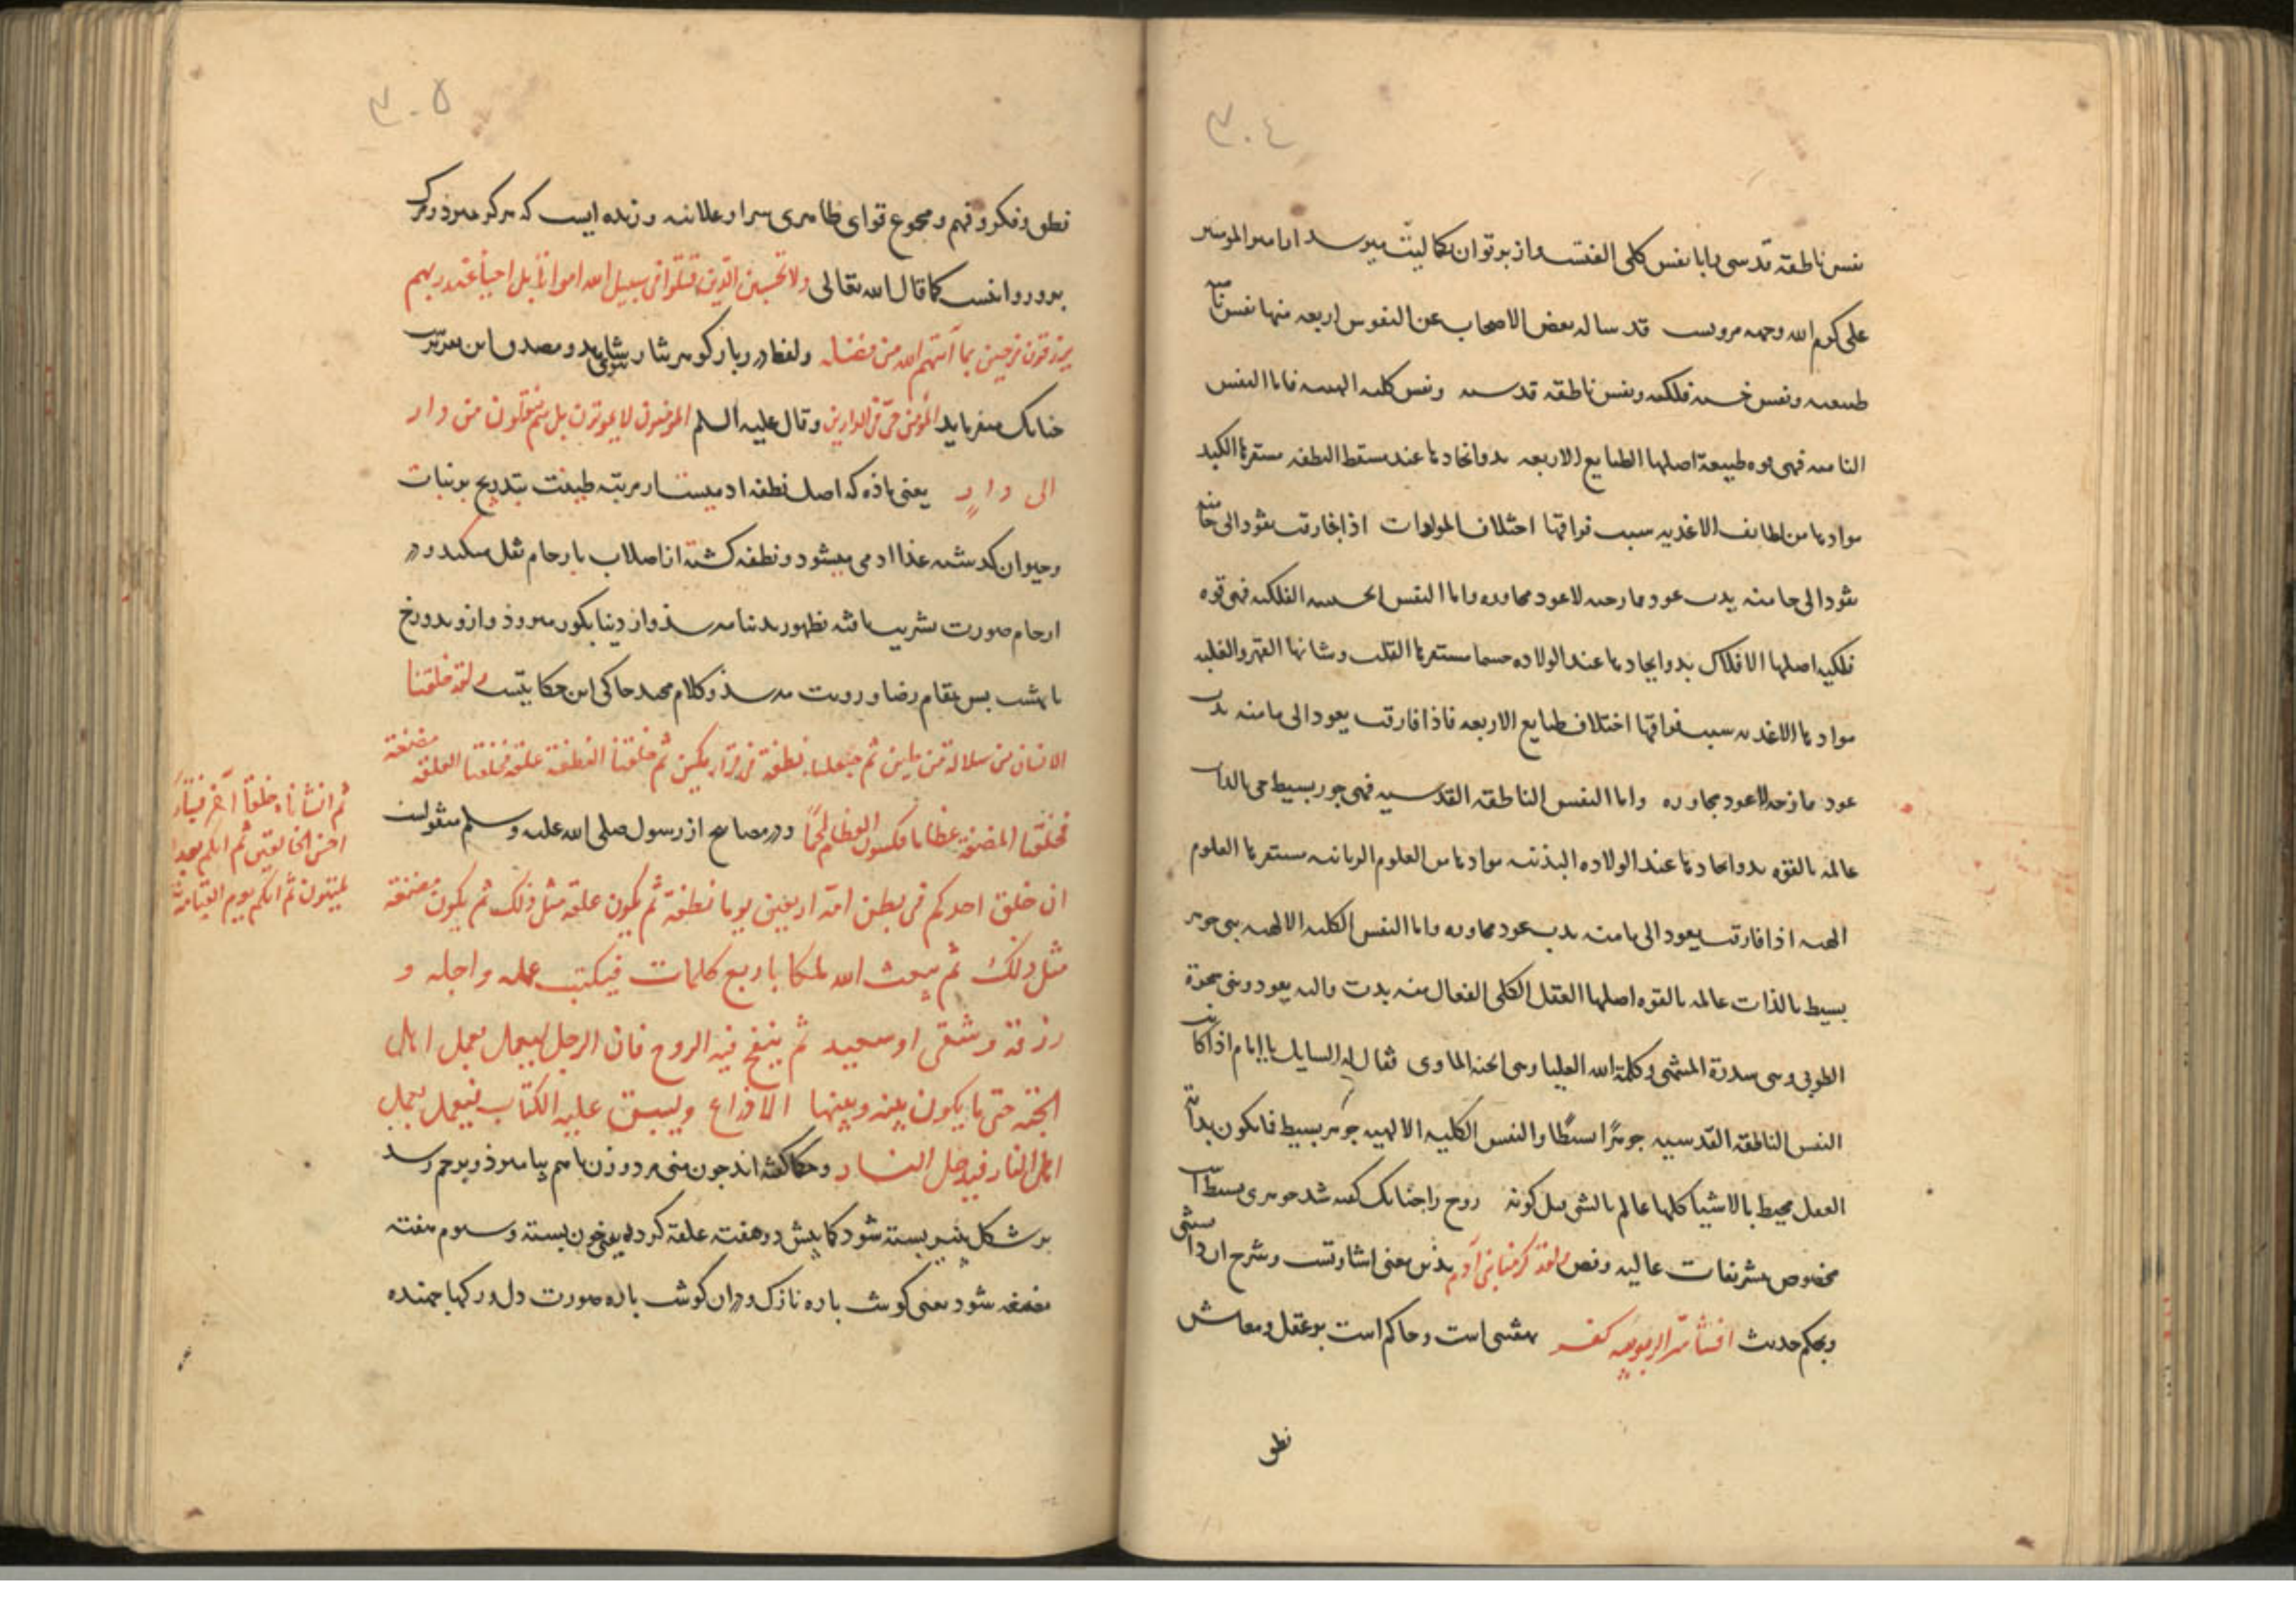 ٣٠٤
نفس ناطقه قدسی را با نفس کلی الفتست و از پرتو ان بکمالیت میرسد از امیر المومنین
علی کرم الله وجهه مرویست قد ساله بعض الاصحاب عن النفوس اربعه منها نفس نامیه
طبیعیه ونفس حسیه فلکیه ونفس ناطقه قدسیه ونفس کلیه الهیه فاما النفس
النامیه فهی قوه طبیعة اصلها الطبایع الاربعه بدو اتحادها عند مسقط النطفه مستقرها الکبد
موادها من لطایف الاغذیه سبب فراقها اختلاف المولدات اذا فارقت یعود الی ما منه
یعود الی ما منه بدت عود ممازجه لا عود مجاوره واما النفس الحسیه الفلکیه فهی قوه
فلکیه اصلها الافلاک بدو ایجادها عند الولاده جسما مستقرها القلب و شانها القهر والغلبه
موادها الاغذیه سبب فراقها اختلاف طبایع الاربعه فاذا فارقت یعود الی ما منه بدت
عود ممازجه لا عود مجاوره واما النفس الناطقه القدسیه فهی جوهر بسیط حی بالذات
عالمه بالقوه بدو اتحادها عند الولاده البدنیه موادها من العلوم الربانیه مستقرها العلوم
الهیه اذا فارقت یعود الی ما منه بدت عود مجاوره واما النفس الکلیه الالهیه هی جوهر
بسیط بالذات عالمه بالقوه اصلها العقل الکلی الفعال منه بدت والیه یعود وهی شجرة
الطوبی وهی سدرة المنتهی وکلمة الله العلیا وهی الجنه الماوی فقال له السایل یا امام اذا کانت
النفس الناطقه القدسیه جوهرًا بسیطًا والنفس الکلیه الالهیه جوهر بسیط فما یکون بدایته
العقل محیط بالاشیا کلها عالم بالشی قبل کونه روح را چنانک گفته شد جوهری بسیطست
مخصوص بتشریفات عالیه ونص ولقد کرمنا بنی آدم بذین معنی اشارتست وشرح ان
وبحکم حدیث افشا سر الربوبیه کفر منهی است وحاکم است بر عقل ومعاش
نطق
٣٠٥
نطق وفکر وفهم ومجموع قوای ظاهری سرا وعلانیه وزنده ایست که هرگز نمیرد ومرگ
برو روا نیست کما قال الله تعالی ولا تحسبن الذین قتلوا فی سبیل الله امواتًا بل احیأ عند ربهم
یرزقون فرحین بما آتیهم الله من فضله ولفظ در بار گوهر نثار ومصدق این
چنانک میفرماید المؤمن حیّ فی الدارین وقال علیه السلم المؤمنون لا یموتون بل ینقلون من دار
الی دارٍ یعنی ماده که اصل نطفه ادمیست از مرتبه طبیعت بتدریج بر نبات
وحیوان گذشته غذا ادمی میشود ونطفه گشته از اصلاب بارحام نقل میکند ودر
ارحام صورت بشریت یافته بظهور بدنیا میرسد واز دنیا بگور میرود وازو بدوزخ
یا بهشت پس بمقام رضا ورویت میرسد وکلام مجید حاکی این حکایتست ولقد خلقنا
الانسان من سلالة من طین ثم جعلناه نطفة فی قرار مکین ثم خلقنا النطفة علقة فخلقنا العلقة مضغة
فخلقنا المضغة عظاما فکسونا العظام لحمًا ودر مصابیح از رسول صلی الله علیه وسلم منقولست
ثم انشأناه خلقًا آخر فتبارک
احسن الخالقین ثم انکم بعد
لمیتون ثم انکم یوم القیامة
ان خلق احدکم فی بطن امه اربعین یوما نطفة ثم یکون علقة مثل ذلک ثم یکون مضغة
مثل ذلک ثم یبعث الله ملکا باربع کلمات فیکتب عمله واجله و
رزقه وشقی او سعید ثم ینفخ فیه الروح فان الرجل لیعمل بعمل اهل
الجنه حتی ما یکون بینه وبینها الا ذراع ویسبق علیه الکتاب فیعمل بعمل
اهل النار فیدخل النار وحکما گفته اند چون منی مرد وزن باهم بیامیزد وبرحم رسد
بر شکل پنیر بسته شود دو هفته علقه گردد یعنی خون بسته وسیوم هفته
مضغه شود یعنی گوشت پاره نازک ودران گوشت پاره صورت دل ورگها جهنده